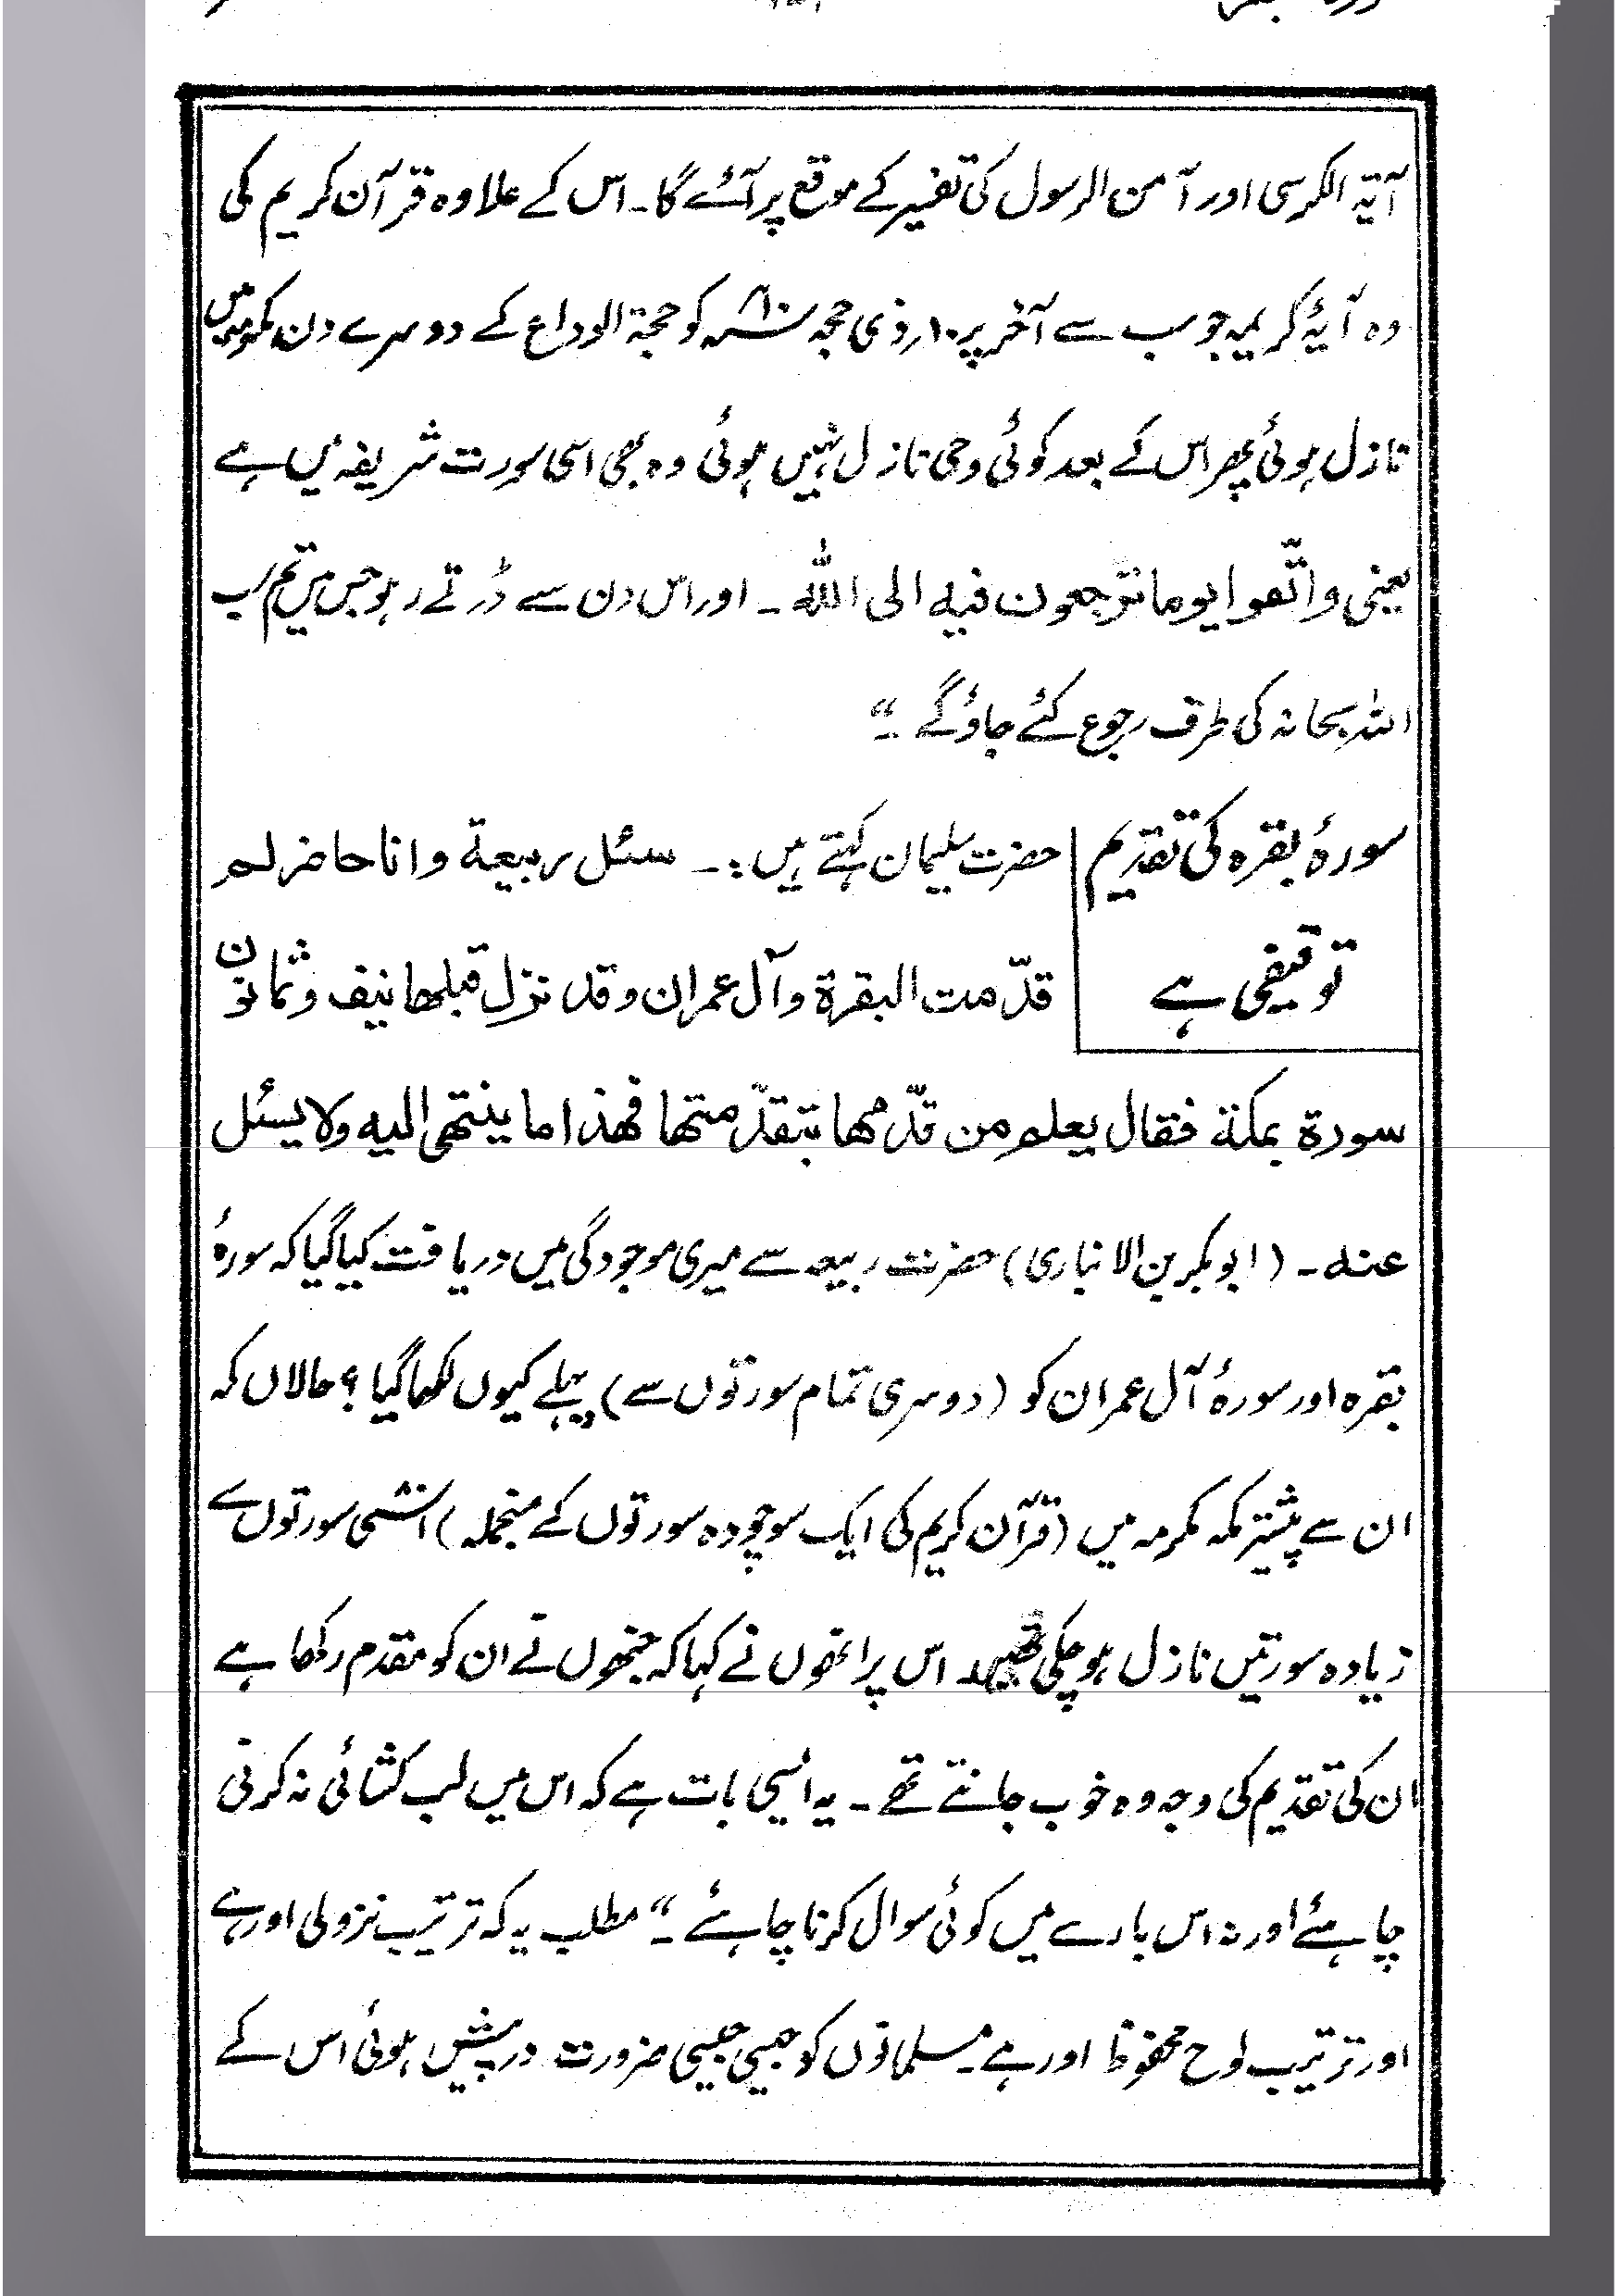 آیۃ الکرسی اور آمن الرسول کی تفسیر کے موقع پر آئے گا۔ اس کے علاوہ قرآن کریم کی
وہ آیۂ کریمہ جو سب سے آخر پر ۱۰ر ذی حجہ ۱۰ھ کو حجۃ الوداع کے دوسرے دن مکہ میں
نازل ہوئی پھر اس کے بعد کوئی وحی نازل نہیں ہوئی وہ بھی اسی سورت شریفہ میں ہے
یعنی واتّقوا یوما ترجعون فیه الی الله ۔ اور اس دن سے ڈرتے رہو جس میں تم سب
اللہ سبحانہ کی طرف رجوع کئے جاؤ گے ۔“
سورۂ بقرہ کی تقدیم
توقیفی ہے
حضرت سلیمان کہتے ہیں :۔ سئل ربیعة وانا حاضر لم
قدّمت البقرة وآل عمران وقد نزل قبلها نیف وثمانون
سورة بمکة فقال یعلم من قدّمها بتقدّمتها فهذا ما ینتهی الیه ولا یسئل
عنه ۔ (ابوبکر بن الانباری) حضرت ربیعہ سے میری موجودگی میں دریافت کیا گیا کہ سورۂ
بقرہ اور سورۂ آل عمران کو (دوسری تمام سورتوں سے) پہلے کیوں لکھا گیا؟ حالاں کہ
ان سے پیشتر مکہ مکرمہ میں (قرآن کریم کی ایک سو چودہ سورتوں کے منجملہ) اسّی سورتوں سے
زیادہ سورتیں نازل ہو چکی تھیں۔ اس پر انھوں نے کہا کہ جنھوں نے ان کو مقدم رکھا ہے
ان کی تقدیم کی وجہ وہ خوب جانتے تھے ۔ یہ ایسی بات ہے کہ اس میں لب کشائی نہ کرنی
چاہئے اور نہ اس بارے میں کوئی سوال کرنا چاہئے ۔“ مطلب یہ کہ ترتیب نزولی اور ہے
اور ترتیب لوح محفوظ اور ہے۔ مسلمانوں کو جیسی جیسی ضرورت درپیش ہوئی اس کے